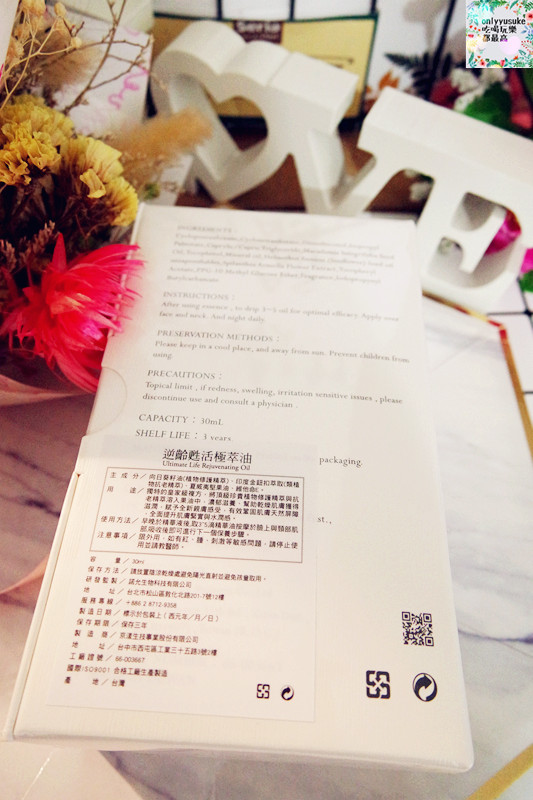 onlyyusuke
吃喝玩樂
部最高
INGREDIENTS:
INSTRUCTIONS:
After using essence, to drip 3~5 oil for optimal efficacy. Apply your
face and neck. And night daily.
PRESERVATION METHODS:
Please keep in a cool place, and away from sun. Prevent children from
using.
PRECAUTIONS:
Topical limit, if redness, swelling, irritation sensitive issues, please
discontinue use and consult a physician.
CAPACITY: 30mL
SHELF LIFE: 3 years.
packaging.
逆齡甦活極萃油
Ultimate Life Rejuvenating Oil
主成分/向日葵籽油(植物修護精萃)、印度金鈕扣萃取(類植
物抗老精萃)、夏威夷堅果油、維他命E。
用途/獨特的皇家級複方,將頂級珍貴植物修護精萃與抗
老精萃溶入果油中,濃郁滋養、幫助乾燥肌膚獲得
滋潤,賦予全新親膚感受、有效鞏固肌膚天然屏障
,全面提升肌膚緊實與水潤感。
使用方法/早晚於精華液後,取3~5滴精華油按摩於臉上與頸部肌
膚,吸收後即可進行下一個保養步驟。
注意事項/限外用,如有紅、腫、刺激等敏感問題,請停止使
用並請教醫師。
容量/30ml
保存方法/請放置陰涼乾燥處避免陽光直射並避免孩童取用。
研發監製/諾允生物科技有限公司
地址/台北市松山區敦化北路201-7號12樓
服務專線/+886 2 8712-9358
製造日期/標示於包裝上(西元年/月/日)
保存期限/保存三年
製造商/京漾生技事業股份有限公司
地址/台中市西屯區工業三十五路3號2樓
工廠證號/66-003667
國際ISO9001 合格工廠生產製造
產地/台灣
st.,